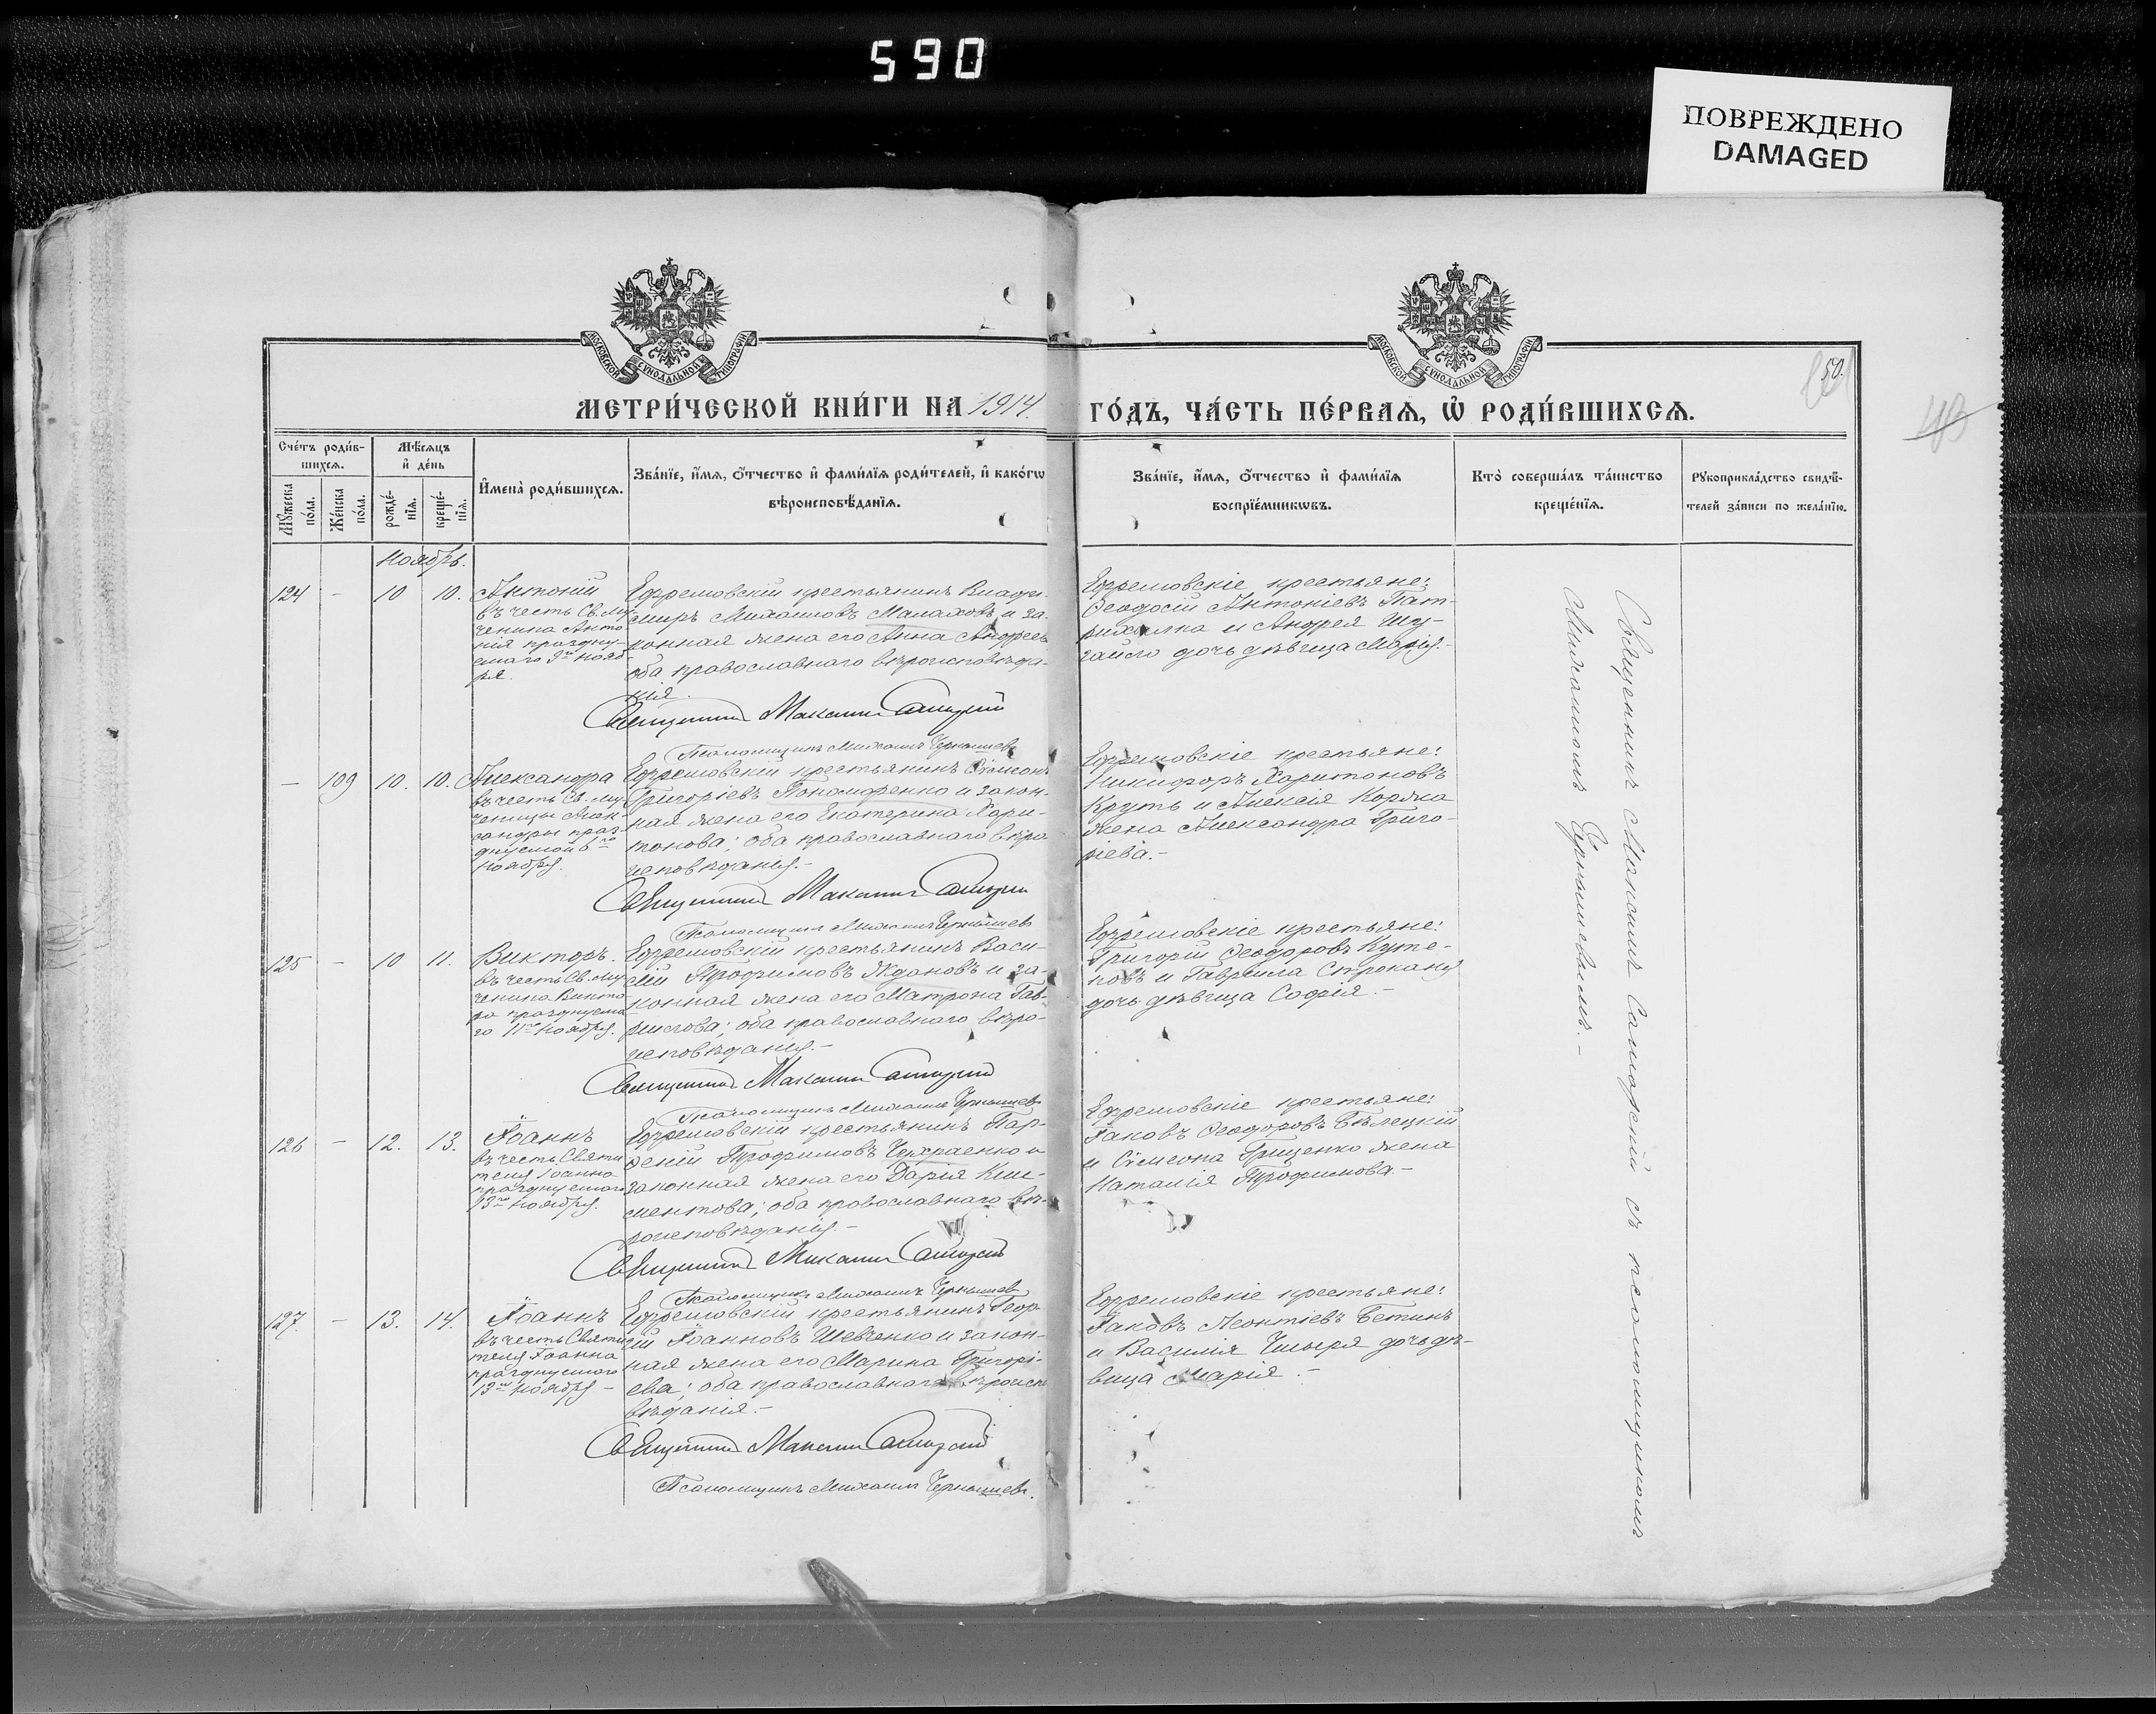 590
ПОВРЕЖДЕНО
DAMAGED
МОСКОВСКОЙ СѴНОДАЛЬНОЙ ТИПОГРАФІИ
МОСКОВСКОЙ СѴНОДАЛЬНОЙ ТИПОГРАФІИ
50.
МЕТРИ́ЧЕСКОЙ КНИ́ГИ НА 1914. ГО́ДЪ, ЧА́СТЬ ПЕ́РВАѦ, Ѡ҆ РОДИ́ВШИХСѦ.
Сче́тъ роди́в-
шихсѧ.
Мꙋ́жеска
по́ла.
Же́нска
по́ла.
Мѣ́сѧцъ
и҆ де́нь
рожде́-
нїѧ.
креще́-
нїѧ.
И҆мена̀ роди́вшихсѧ.
Зва́нїе, и҆́мѧ, ѻ҆́тчество и҆ фами́лїѧ роди́телей, и҆ како́гѡ
вѣроисповѣ́данїѧ.
Зва́нїе, и҆́мѧ, ѻ҆́тчество и҆ фами́лїѧ
воспрїе́мникѡвъ.
Кто̀ соверша́лъ та́инство
креще́нїѧ.
Рꙋкоприкла́дство свидѣ́-
телей за́писи по жела́нїю.
Ноябрь.
124 - 10 10.
Антоній
въ честь Св. му
ченика Анто
нія праздну-
емаго 9го нояб
ря.
Ефремовскій крестьянинъ Влади-
миръ Михаиловъ Малаховъ и за-
конная жена его Анна Андреева
оба православнаго вѣроисповѣда-
нія.
Священникъ Максимъ Самурскій
Псаломщикъ Михаилъ Чернышевъ
Ефремовскіе крестьяне:
Ѳеодосій Антоніевъ Пат-
рихалка и Андрея Шу-
гайло дочь дѣвица Марія.-
- 109 10. 10.
Александра
въ честь Св. му
ченицы Алек-
сандры праз-
днуемой 6го
ноября.
Ефремовскій крестьянинъ Сѵмеонъ
Григоріевъ Пономаренко и закон-
ная жена его Екатерина Хари-
тонова; оба православнаго вѣро
исповѣданія.-
Священникъ Максимъ Самурскій
Псаломщикъ Михаилъ Чернышевъ
Ефремовскіе крестьяне:
Никифоръ Харитоновъ
Круть и Алексія Коряка
жена Александра Григо-
ріева.-
125 - 10 11.
Викторъ.
въ честь Св. му
ченика Викто
ра празднуема
го 11го ноября.
Ефремовскій крестьянинъ Васи-
лій Трофимовъ Ждановъ и за-
конная жена его Матрона Гав-
рилова; оба православнаго вѣро-
исповѣданія.-
Священникъ Максимъ Самурскій
Псаломщикъ Михаилъ Чернышевъ
Ефремовскіе крестьяне:
Григорій Ѳеодоровъ Куте-
повъ и Гавріила Строканя
дочь дѣвица Софія.-
126 - 12. 13.
Іоаннъ
въ честь Святи
теля Іоанна
празднуемаго
13го ноября.
Ефремовскій крестьянинъ Пар-
ѳеній Трофимовъ и
законная жена его Дарія Кли-
ментова; оба православнаго вѣ-
роисповѣданія.-
Священникъ Максимъ Самурскій
Псаломщикъ Михаилъ Чернышевъ
Ефремовскіе крестьяне:
Іаковъ Ѳеодоровъ Бѣлецкій
и Сѵмеона Гриценко жена
Наталія Трофимова-
127. - 13. 14.
Іоаннъ
въ честь Святи
теля Іоанна
празднуемаго
13го ноября-
Ефремовскій крестьянинъ Геор
гій Іоанновъ Шевченко и закон-
ная жена его Марина Григорі-
ева; оба православнаго вѣроиспо
вѣданія.-
Священникъ Максимъ Самурскій
Псаломщикъ Михаилъ Чернышевъ.
Ефремовскіе крестьяне:
Іаковъ Леонтіевъ Бетинъ
и Василія Чмыря дочь дѣ-
вица Марія.-
Священникъ Максимъ Самурскій съ псаломщикомъ
Михаиломъ Чернышевымъ.-